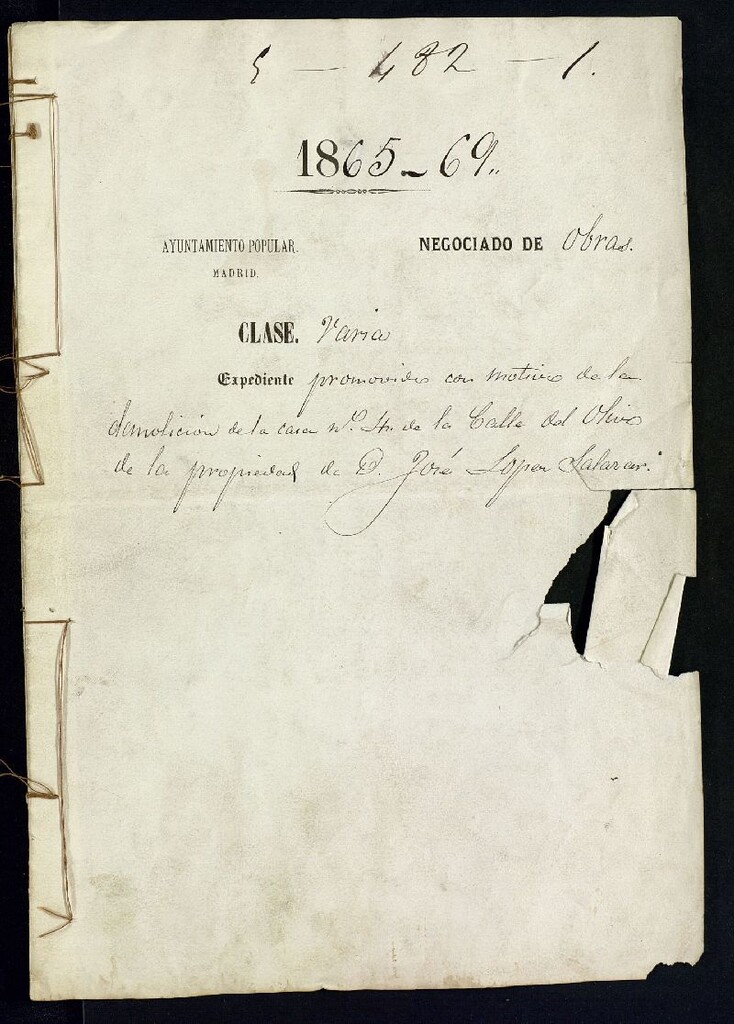 5 - 482 - 1.
1865-69.
AYUNTAMIENTO POPULAR. NEGOCIADO DE Obras.
MADRID.
CLASE. Varia
Expediente promovido con motivo de la
demolicion de la casa nº. 4. de la Calle del Olivo
de la propiedad de D. José Lopez Salazar.